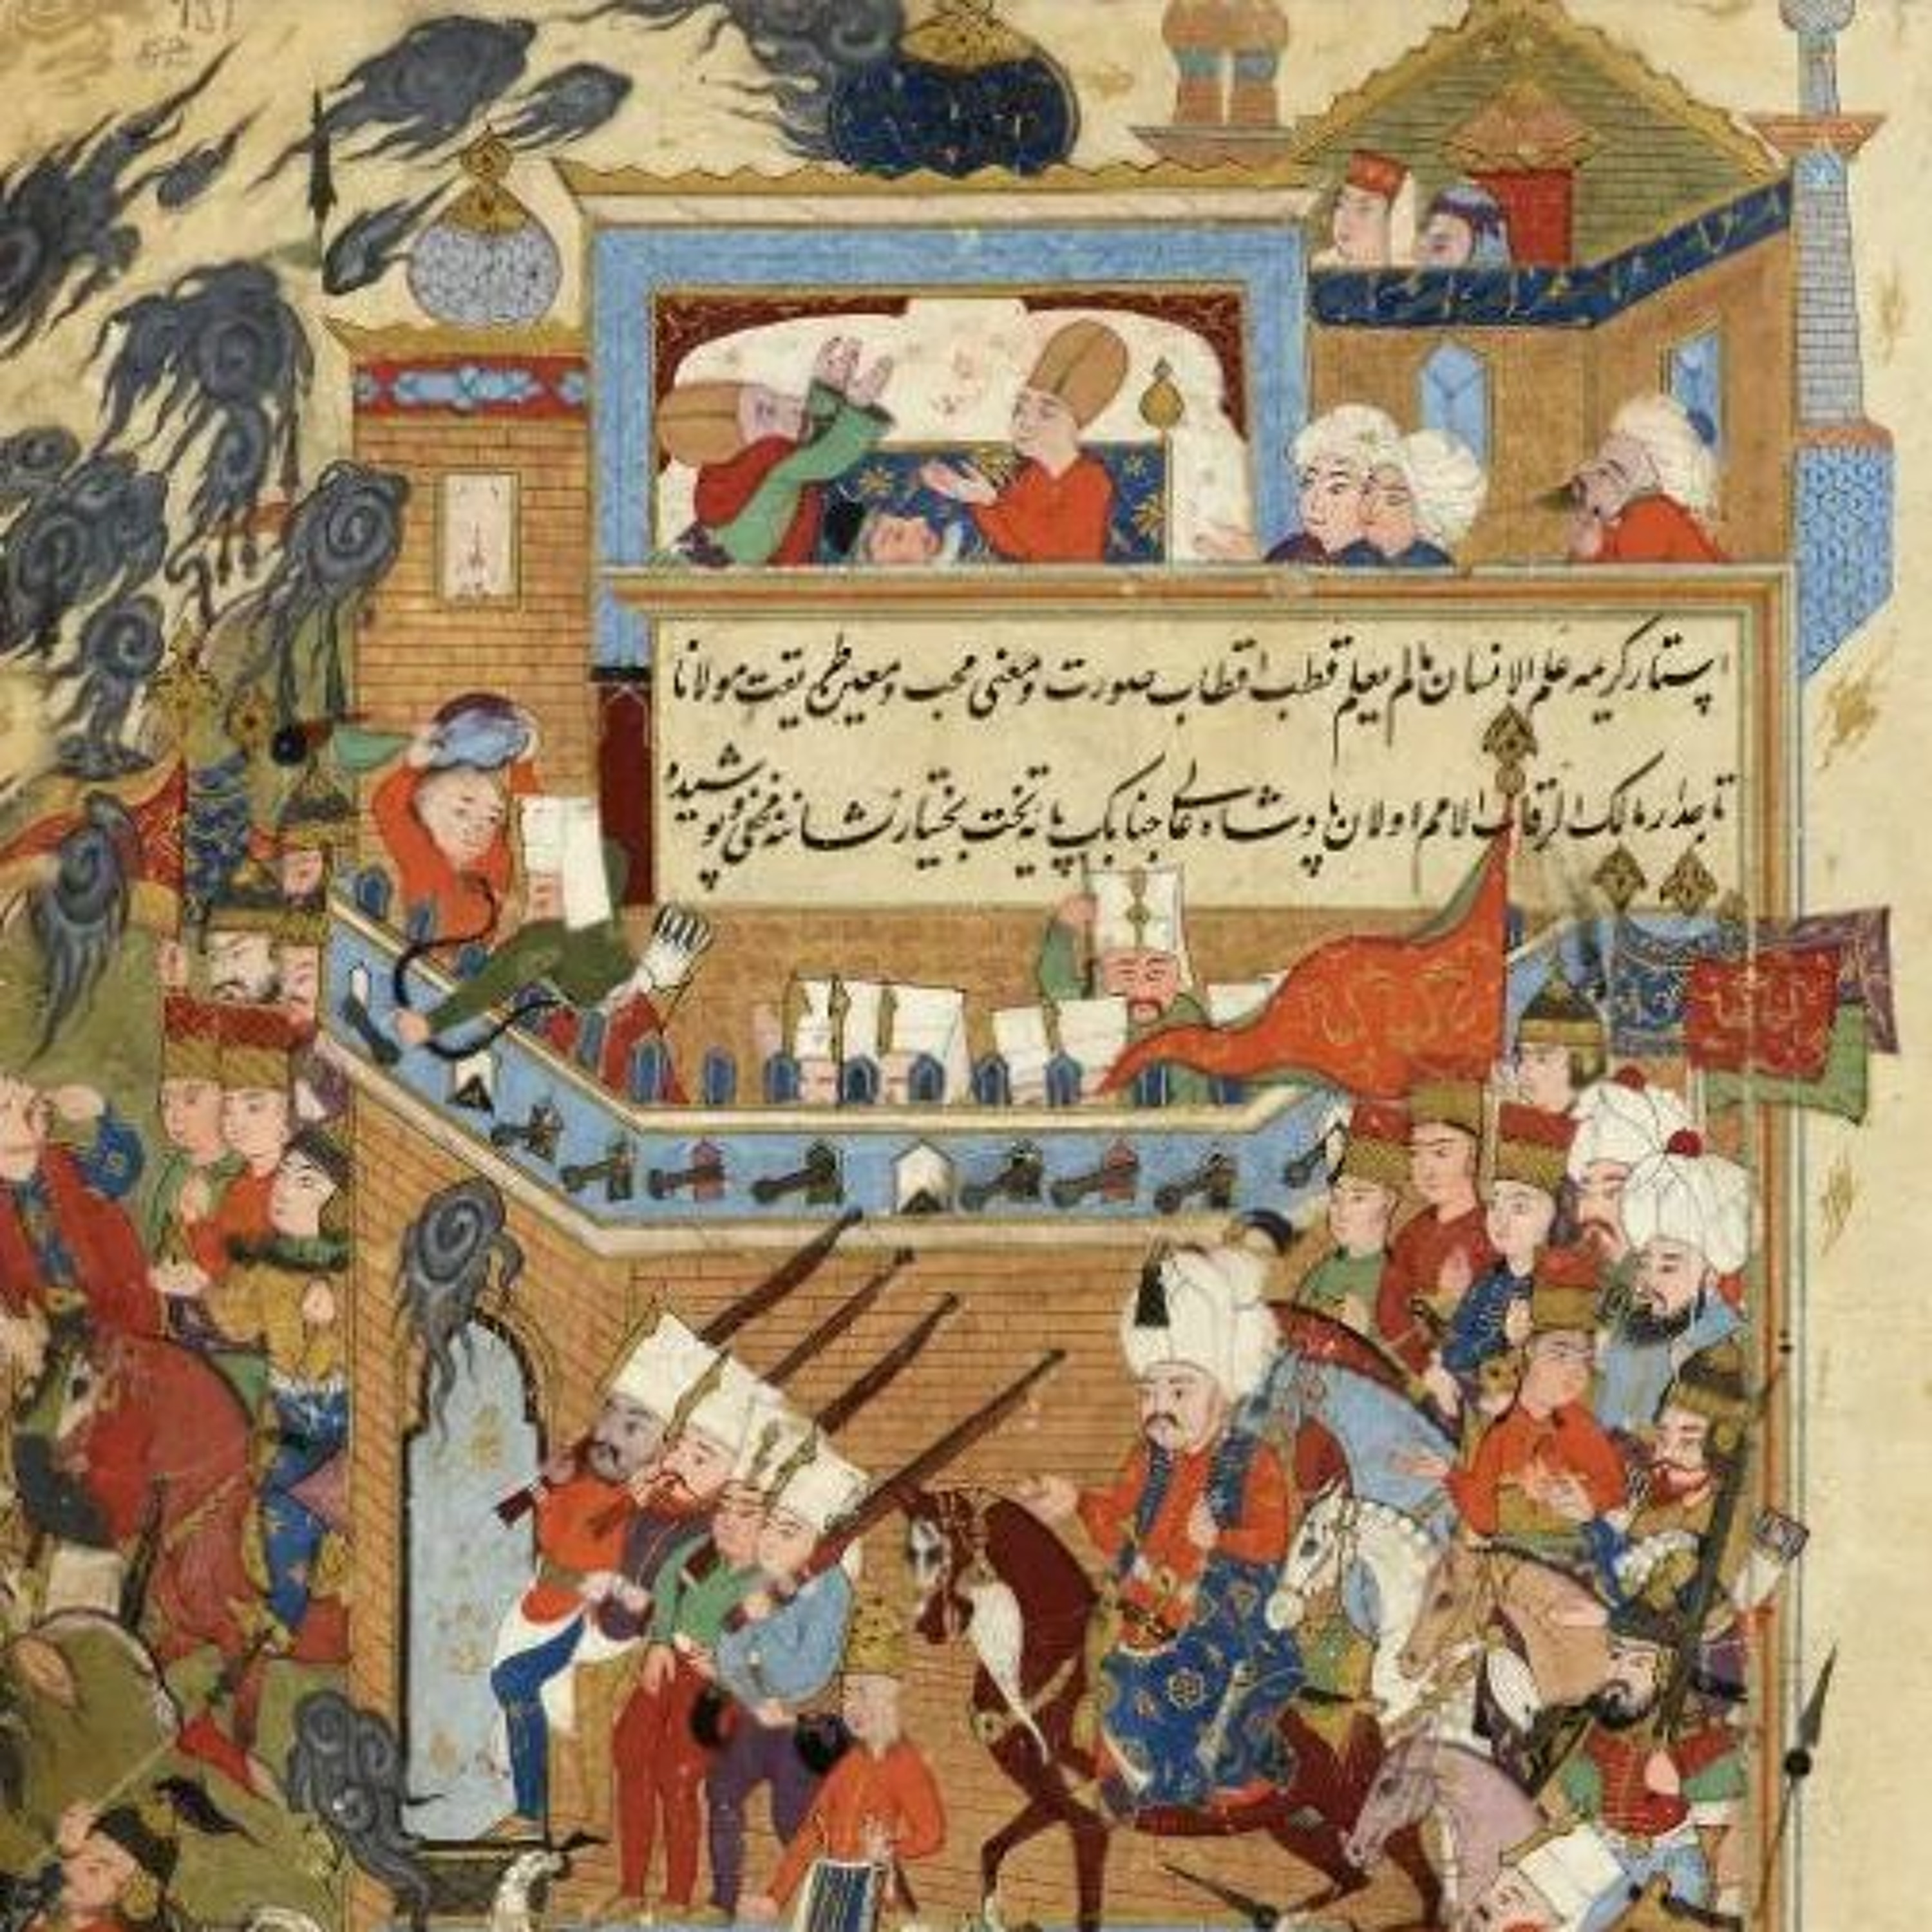 استار كريمه علم الانسان مالم يعلم قطب اقطاب صورت ومعنى محب ومعين طريقت مولانا
تاجدار مالك الرقاب الامم اولان پادشاه عالى جنابك پايه تخت بختيار نشانه مخفى پوشيده